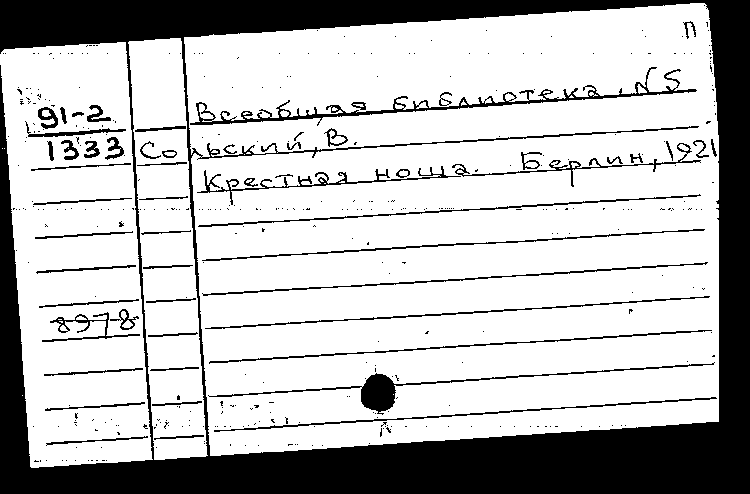 П
91-2 Всеобщая библиотека. N 5
1333 Сольский, В.
Крестная ноша. Берлин, 1921
8978